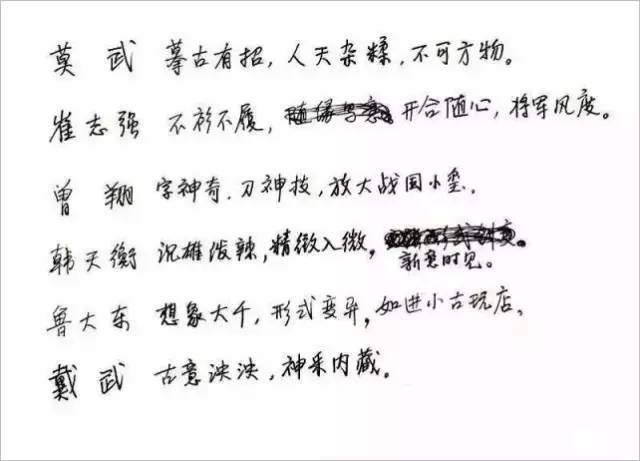 莫武 摹古有招，人天杂糅，不可方物。
崔志强 不衫不履，开合随心，将军风度。
曾翔 字神奇，刀神技，放大战国小玺。
韩天衡 沉雄泼辣，精微入微，
新意时见。
鲁大东 想象大千，形式变异，如进小古玩店。
戴武 古意泱泱，神采内藏。